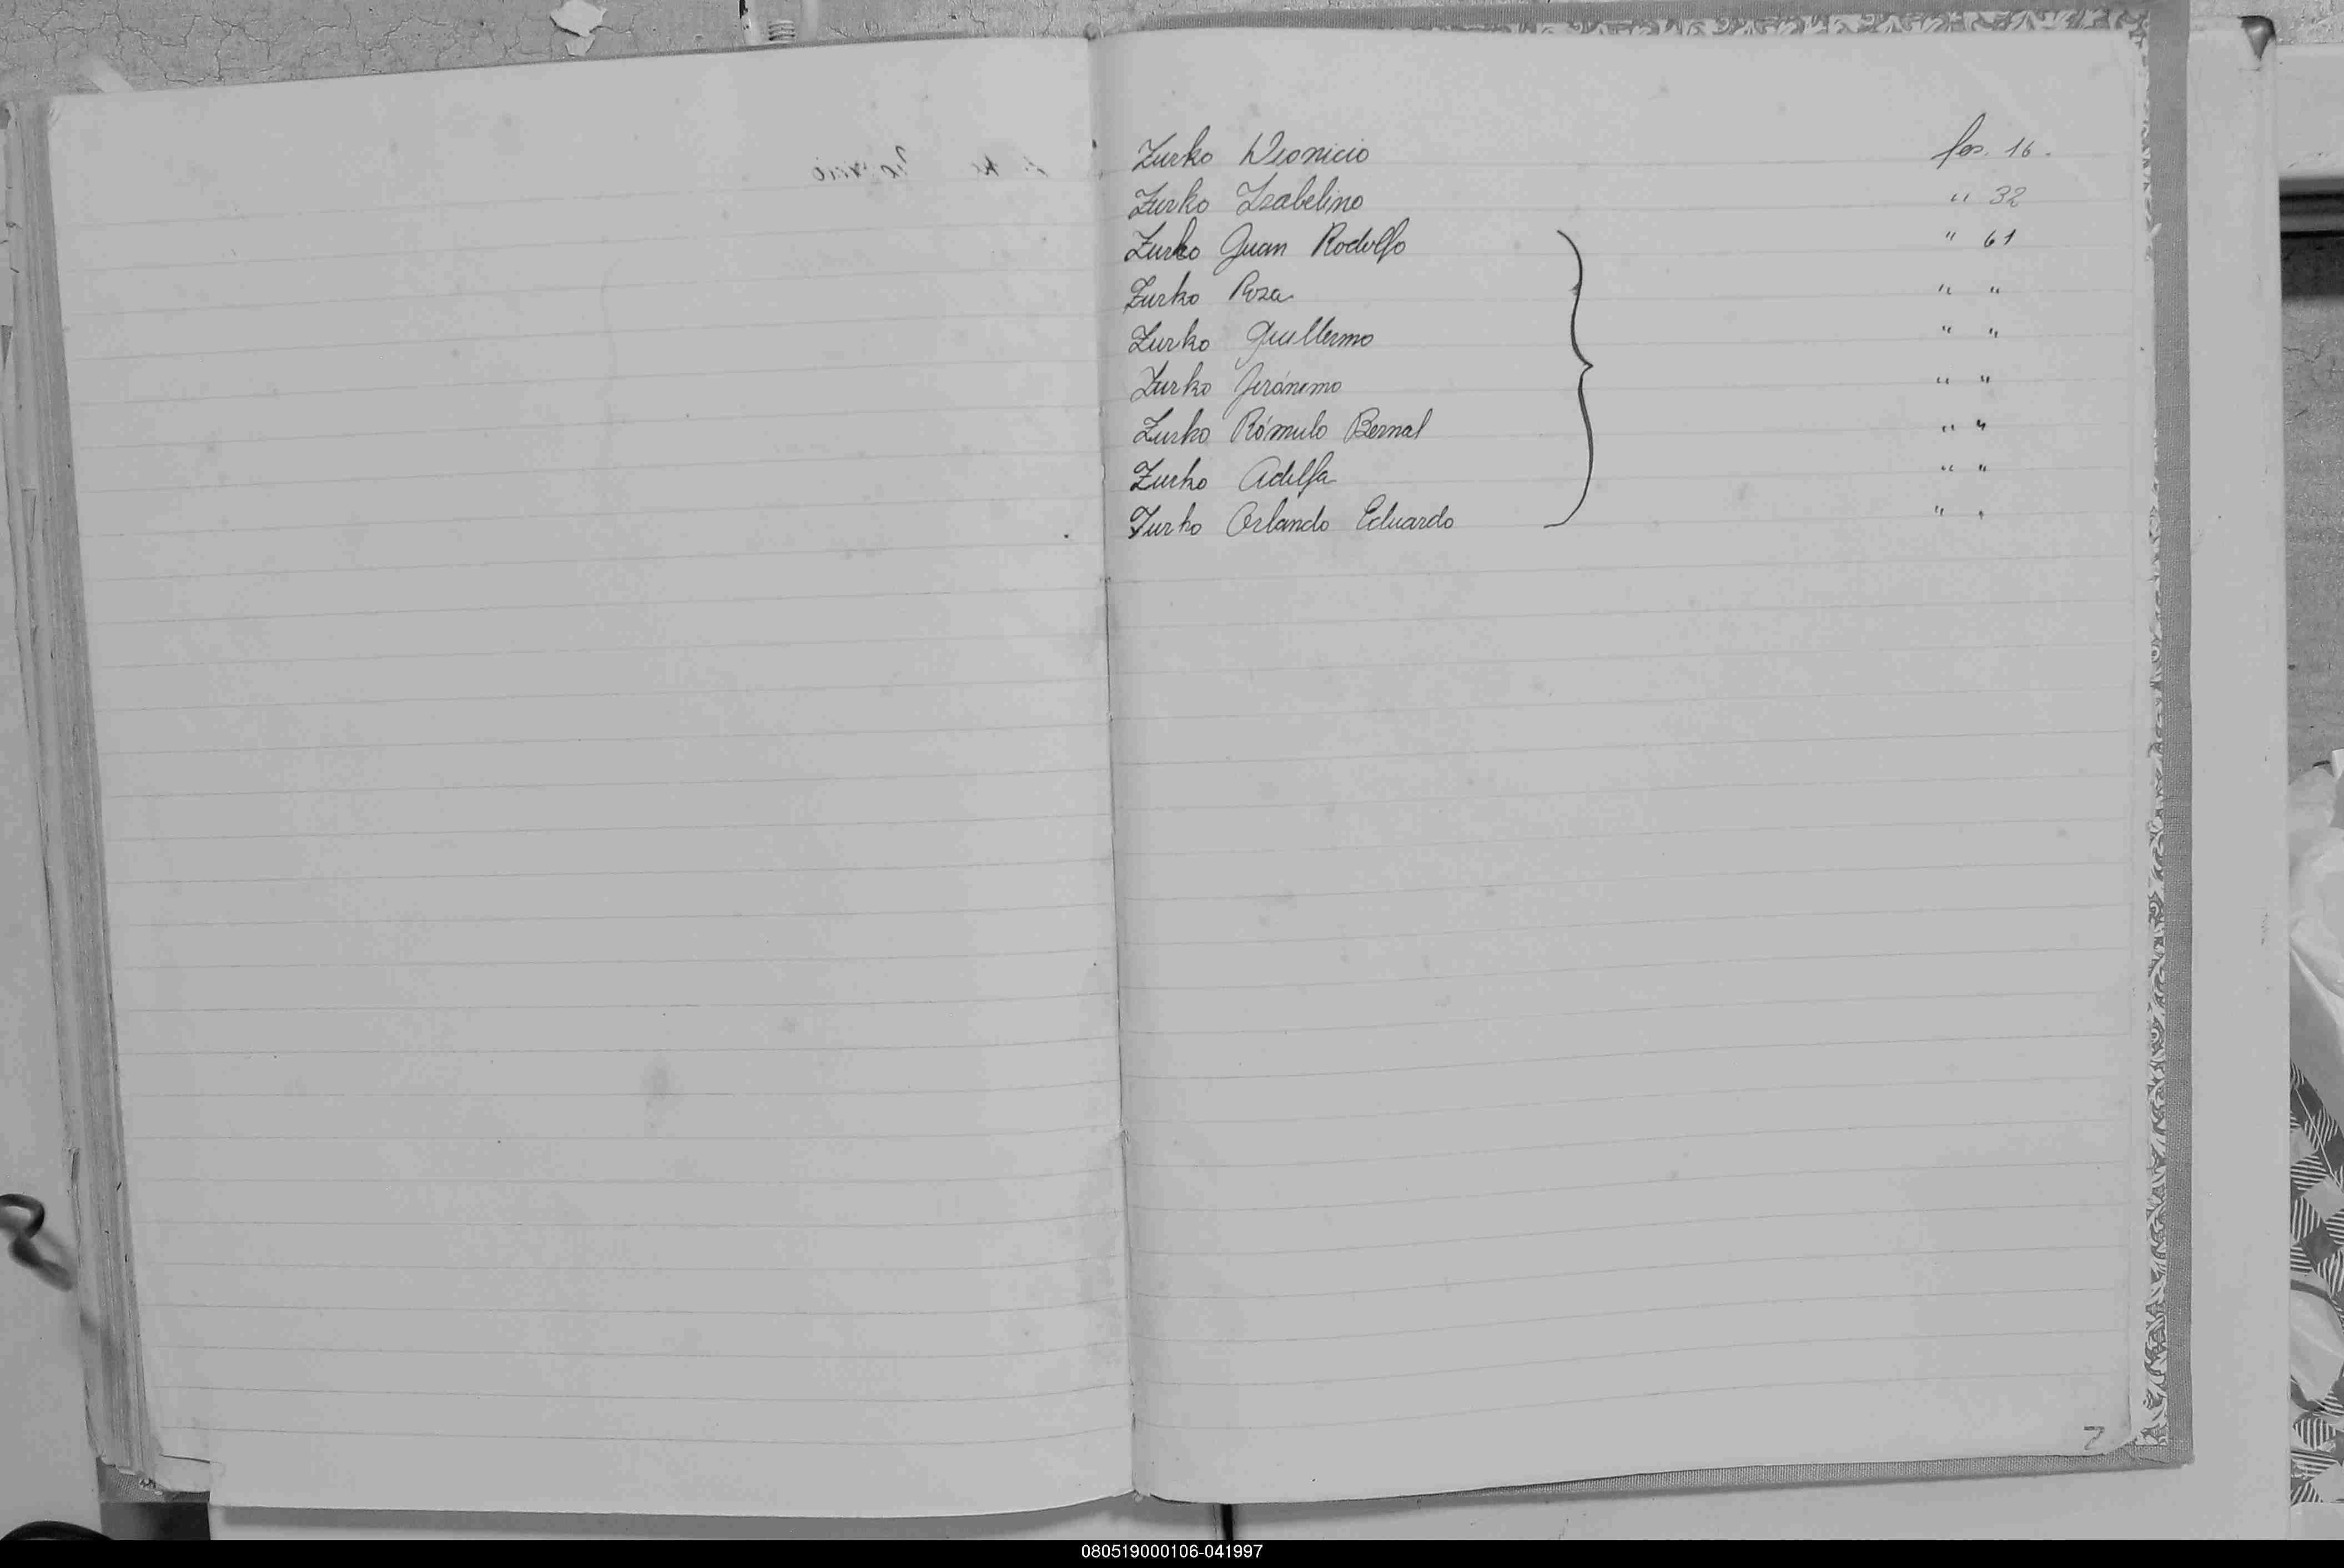 Zurko Dionicio fos. 16.
Zurko Izabelino " 32
Zurko Juan Rodolfo " 61
Zurko Roza " "
Zurko Guillermo " "
Zurko Jerónimo " "
Zurko Rómulo Bernal " "
Zurko Adelfa " "
Zurko Orlando Eduardo " "
Z
080519000106-041997